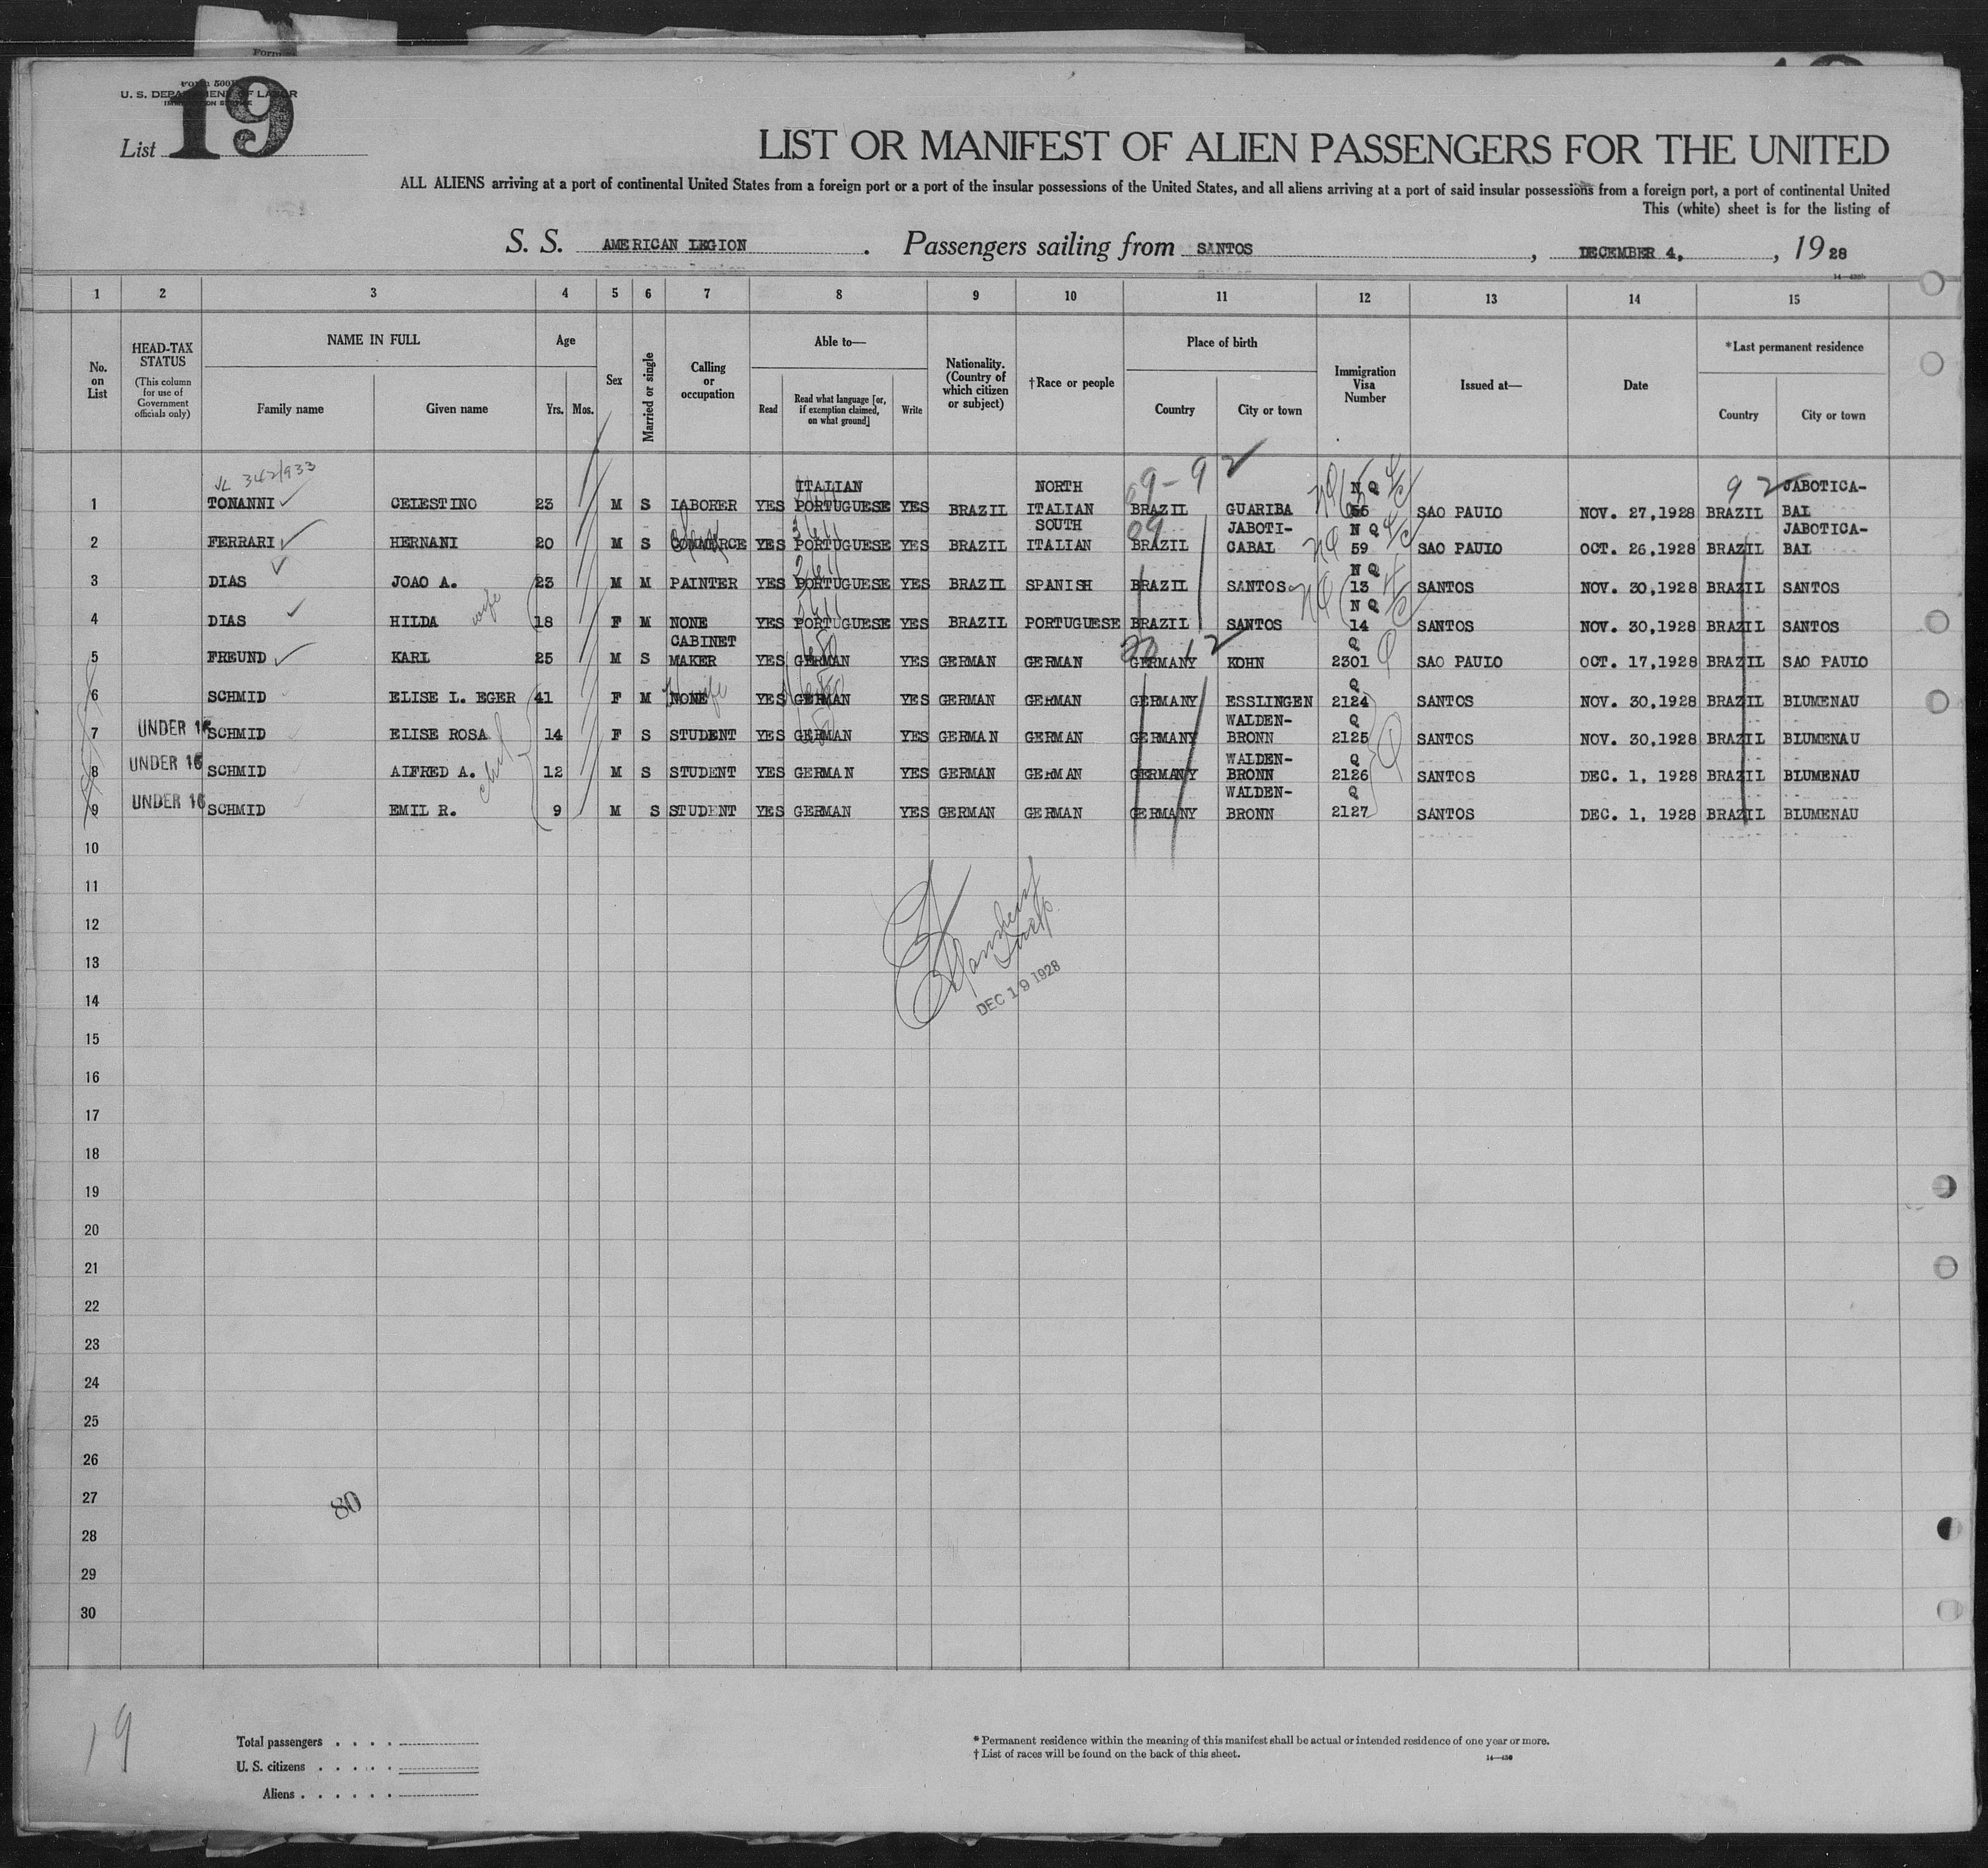 Form 500
U. S. DEPARTMENT OF LABOR
List 19
LIST OR MANIFEST OF ALIEN PASSENGERS FOR THE UNITED
ALL ALIENS arriving at a port of continental United States from a foreign port or a port of the insular possessions of the United States, and all aliens arriving at a port of said insular possessions from a foreign port, a port of continental United
This (white) sheet is for the listing of
S. S. AMERICAN LEGION. Passengers sailing from SANTOS, DECEMBER 4, , 1928
1 2 3 4 5 6 7 8 9 10 11 12 13 14 15
No. on List
HEAD-TAX STATUS (This column for use of Government officials only)
NAME IN FULL
Family name Given name
Age
Yrs. Mos.
Sex
Married or single
Calling or occupation
Able to—
Read
Read what language [or, if exemption claimed, on what ground]
Write
Nationality. (Country of which citizen or subject)
†Race or people
Place of birth
Country City or town
Immigration Visa Number
Issued at—
Date
*Last permanent residence
Country City or town
342/933
9-92
92
1 TONANNI CELESTINO 23 M S LABORER YES ITALIAN PORTUGUESE YES BRAZIL NORTH ITALIAN BRAZIL GUARIBA N Q 56 SAO PAULO NOV. 27,1928 BRAZIL JABOTICA-BAL
2 FERRARI HERNANI 20 M S COMMERCE YES PORTUGUESE YES BRAZIL SOUTH ITALIAN BRAZIL JABOTI-CABAL N Q 59 SAO PAULO OCT. 26,1928 BRAZIL JABOTICA-BAL
3 DIAS JOAO A. 23 M M PAINTER YES PORTUGUESE YES BRAZIL SPANISH BRAZIL SANTOS N Q 13 SANTOS NOV. 30,1928 BRAZIL SANTOS
4 DIAS HILDA wife 18 F M NONE YES PORTUGUESE YES BRAZIL PORTUGUESE BRAZIL SANTOS N Q 14 SANTOS NOV. 30,1928 BRAZIL SANTOS
5 FREUND KARL 25 M S CABINET MAKER YES GERMAN YES GERMAN GERMAN GERMANY KOHN Q 2301 SAO PAULO OCT. 17,1928 BRAZIL SAO PAULO
6 SCHMID ELISE L. EGER 41 F M NONE YES GERMAN YES GERMAN GERMAN GERMANY ESSLINGEN Q 2124 SANTOS NOV. 30,1928 BRAZIL BLUMENAU
7 UNDER 16 SCHMID ELISE ROSA 14 F S STUDENT YES GERMAN YES GERMAN GERMAN GERMANY WALDEN-BRONN Q 2125 SANTOS NOV. 30,1928 BRAZIL BLUMENAU
8 UNDER 16 SCHMID ALFRED A. 12 M S STUDENT YES GERMAN YES GERMAN GERMAN GERMANY WALDEN-BRONN Q 2126 SANTOS DEC. 1, 1928 BRAZIL BLUMENAU
9 UNDER 16 SCHMID EMIL R. 9 M S STUDENT YES GERMAN YES GERMAN GERMAN GERMANY WALDEN-BRONN Q 2127 SANTOS DEC. 1, 1928 BRAZIL BLUMENAU
10
11
12
13
DEC 19 1928
14
15
16
17
18
19
20
21
22
23
24
25
26
27
80
28
29
30
19
Total passengers
U. S. citizens
Aliens
* Permanent residence within the meaning of this manifest shall be actual or intended residence of one year or more.
† List of races will be found on the back of this sheet.